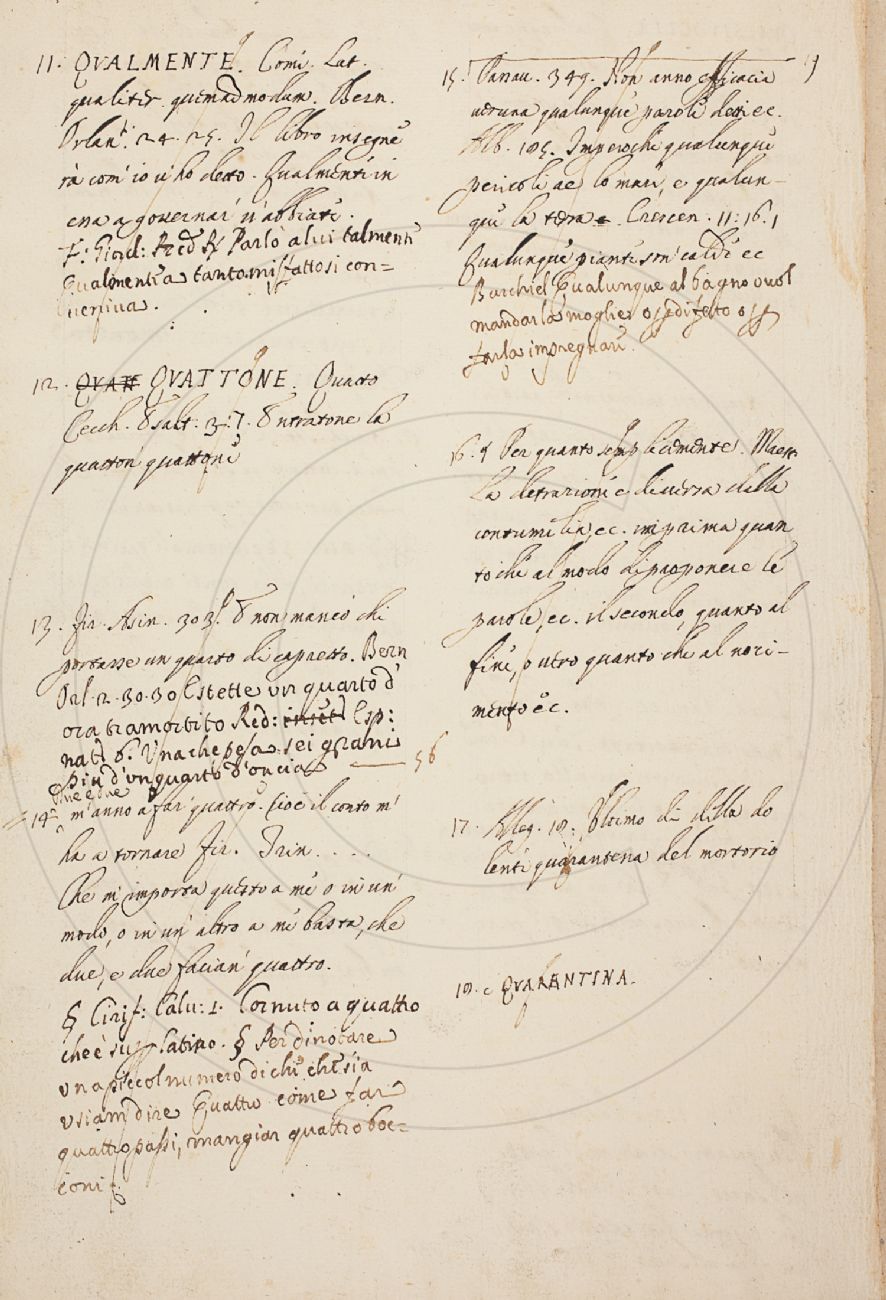 11. QVALMENTE. Come. Lat.
qualiter quemadmodum. Bern.
Orlan. 2. 4. 25. Il libro insegne
rà com' io v' ho detto. Qualmente in
essa a governar v' abbiate.
F. Giord: Pred R. Parlò a lui talmente
Qualmente a tanto misfattosi con=
veniva.
12. QVATTONE. Quatto
Cecch. Esalt: 3: 7. Entratone la
quatton quattone
13. Fir. Asin. 303. E non mancò chi
portasse un quarto di capretto. Bern
Orl. 2. 30. 30 E stette un quarto d'
ora tramortito Red: Esp:
nat. 6. Una che pesa sei grani
piu d'un quarto d'oncia 56
Due e due
14. m' anno a far quattro. Cioè il conto m'
ha a tornare Fir. Trin. . . .
Che m' importa questo a me o in un'
modo, o in un' altro a me basta, che
due, e due facian' quattro.
§ Ciriff: Calv: 1. Cornuto a quattro
che è sup. Latino. § Per dinotare
un piccol numero di chi che sia
usiam dire Quattro come far
quattro passi, mangiar quattro boc=
coni
15. Danau. 349. Non anno efficacia
veruna qualunque parole dette ec.
Alb. 185. Imperoche qualunque
pericoli ae lo mare, e qualun-
que la terra Crescen. 11: 16. 1
Qualunque piante son' calde ec
Burchiel Qualunque al bagno vuol
mandar la moglie
farla impregnare.
16. § Per quanto semplicemente. Maestr.
La detrazione è diversa dalla
contumelia, ec. imprima quan
to che al modo di proponere le
parole, ec. il secondo, quanto al
fine, quanto che al noci-
mento ec.
17. Alleg. 18. Ultimo dì della do
lente quarantena del mortorio
18. QVARENTINA.